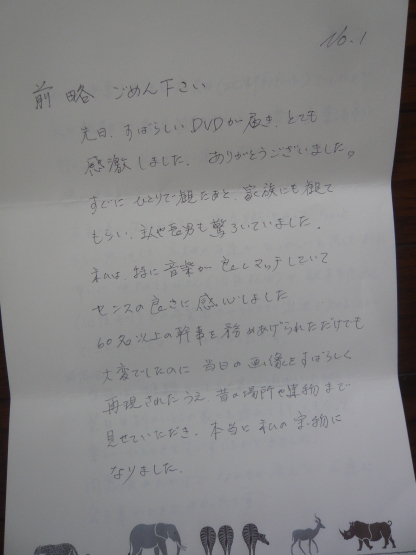 No.1
前略 ごめん下さい
先日、すばらしいDVDが届き、とても
感激しました。ありがとうございました。
すぐに ひとりで観たあと、家族にも観て
もらい、や長男も驚ろいていました。
私は、特に音楽が良くマッチしていて
センスの良さに感心しました
60名以上の幹事を務めあげられただけでも
大変でしたのに 当日の画像をすばらしく
再現されたうえ、昔の場所や建物まで
見せていただき、本当に私の宝物に
なりました。